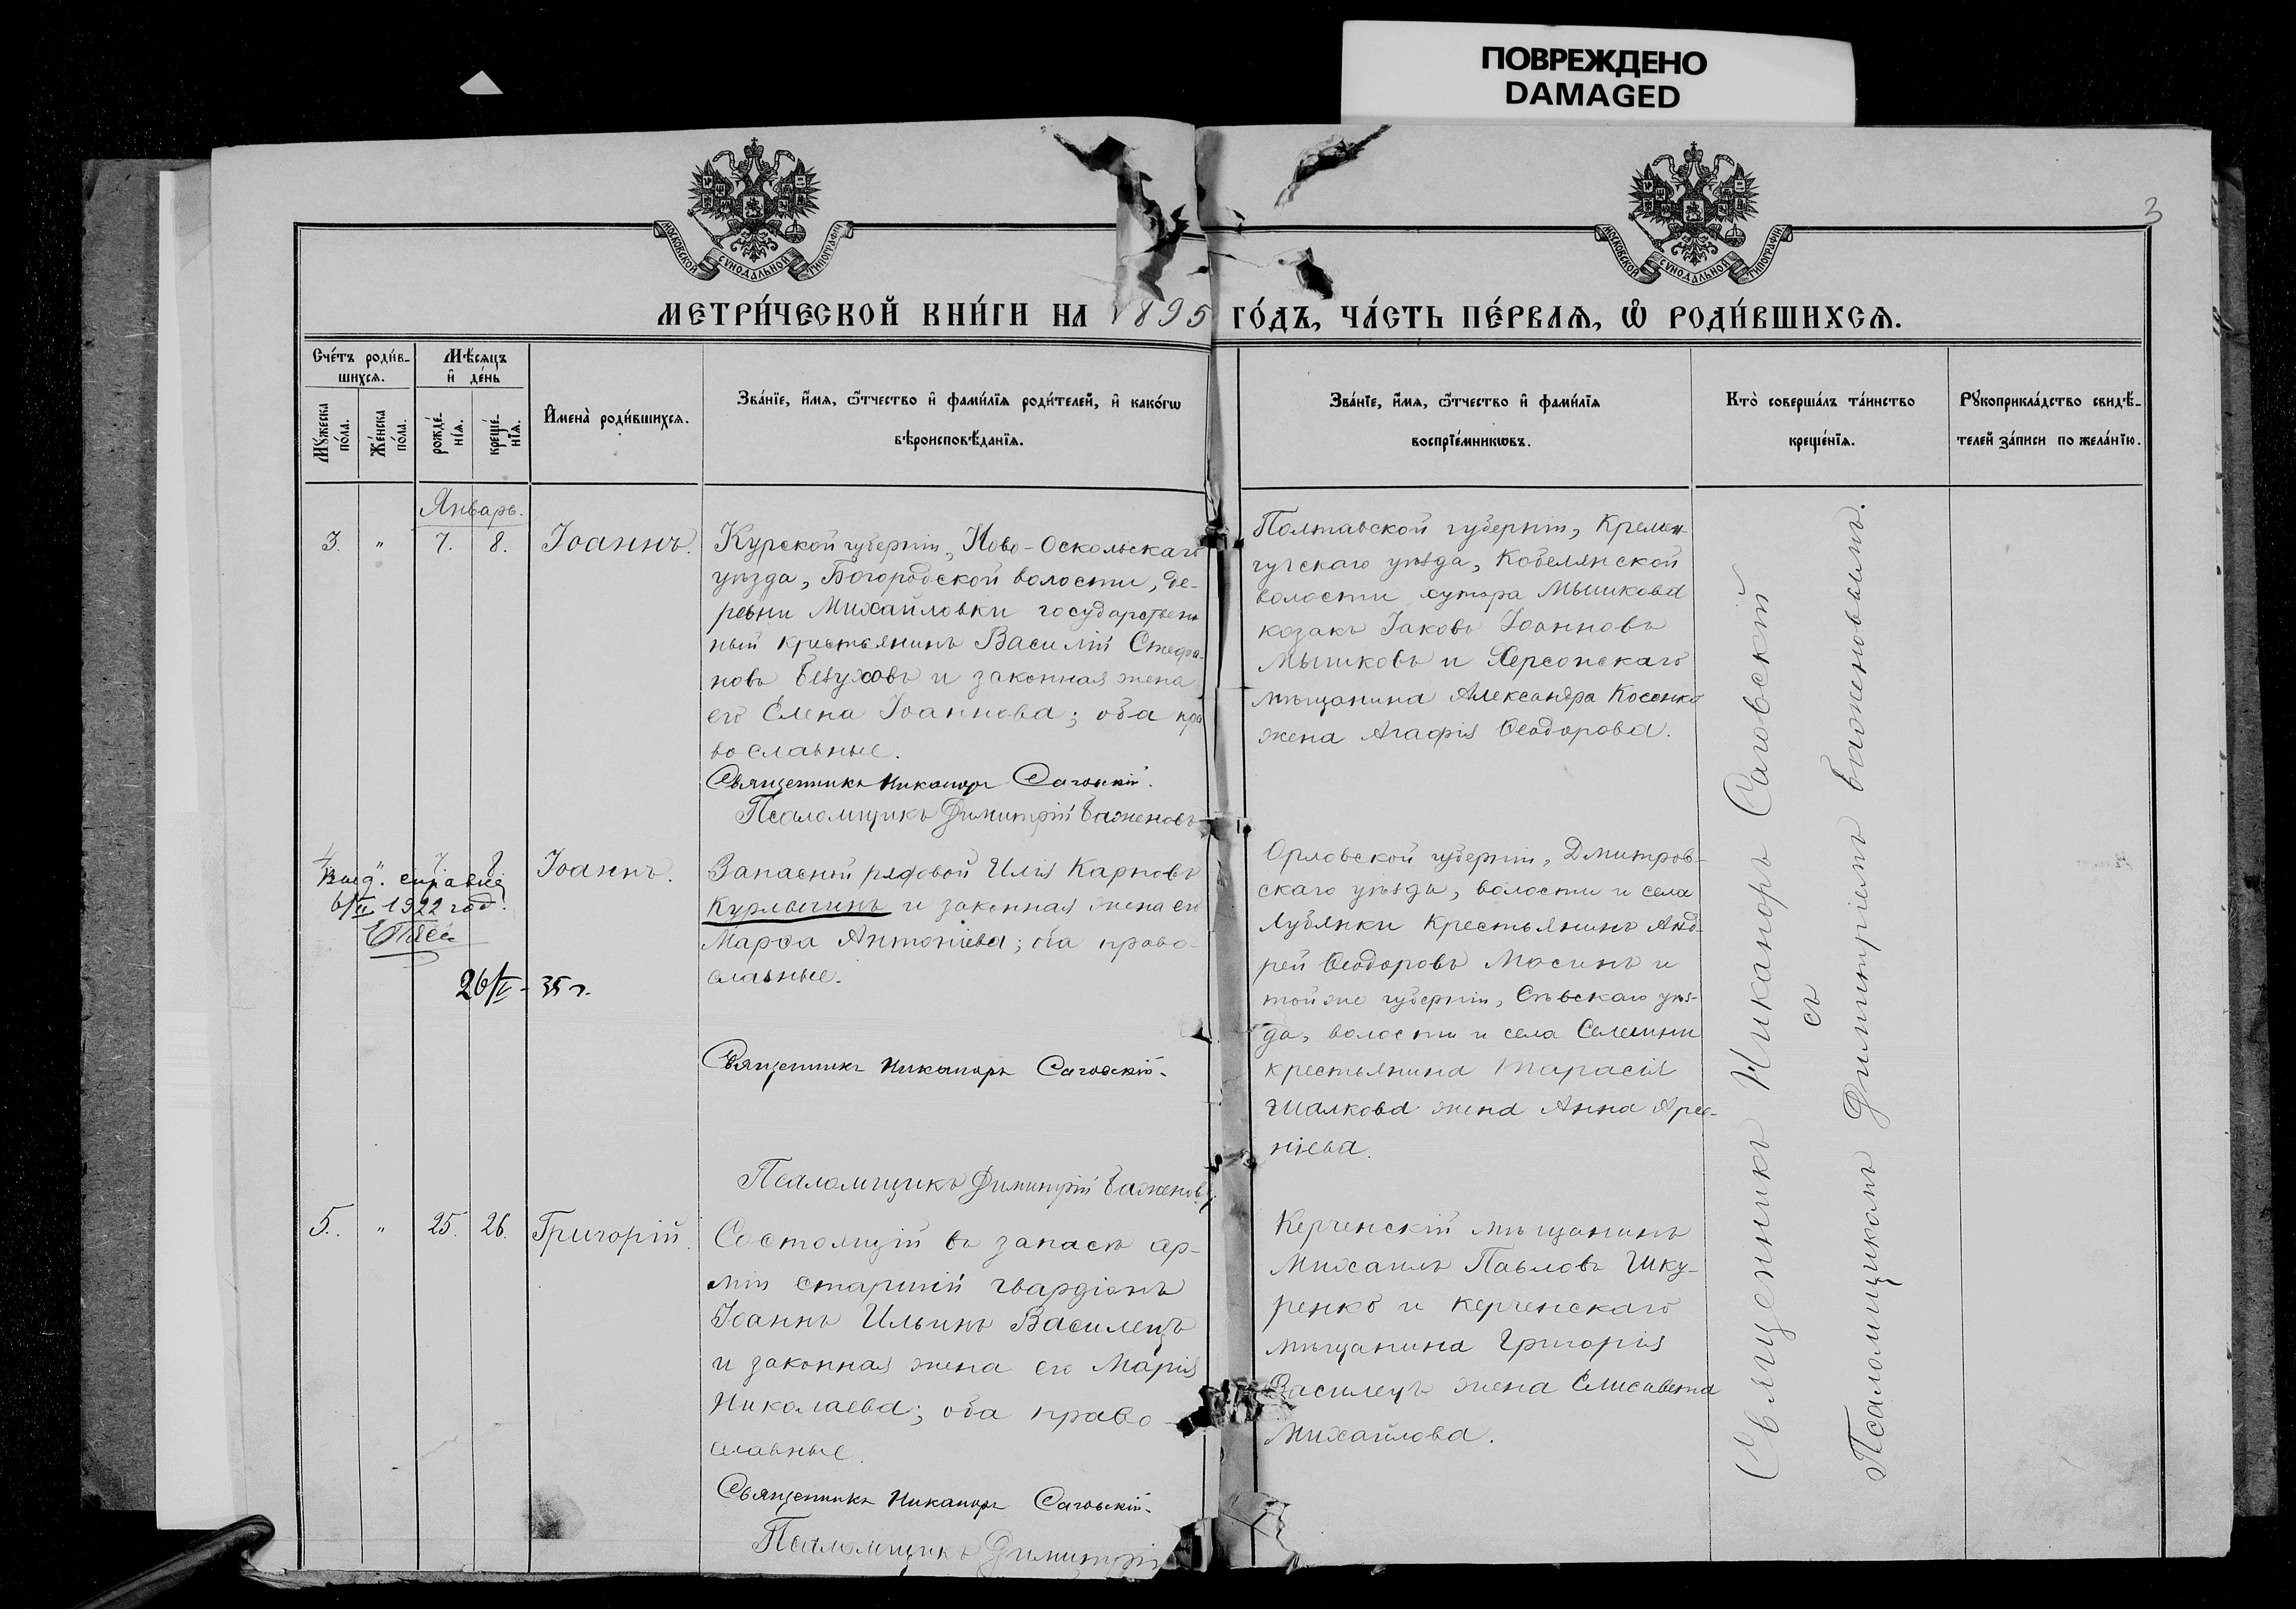 ПОВРЕЖДЕНО
DAMAGED
3
МОСКОВСКОЙ СѴНОДАЛЬНОЙ ТИПОГРАФІИ
МОСКОВСКОЙ СѴНОДАЛЬНОЙ ТИПОГРАФІИ
МЕТРИ́ЧЕСКОЙ КНИ́ГИ НА 1895 ГО́ДЪ, ЧА́СТЬ ПЕ́РВАѦ, Ѡ РОДИ́ВШИХСѦ.
Сче́тъ роди́в-
шихсѧ.
Мѣ́сѧцъ
и де́нь
Мꙋжеска
по́ла.
Же́нска
по́ла.
рожде́-
нїѧ.
креще́-
нїѧ.
Имена̀ роди́вшихсѧ.
Зва́нїе, и́мѧ, ѻ́тчество и фами́лїѧ роди́телей, и како́гѡ
вѣроисповѣ́данїѧ.
Зва́нїе, и́мѧ, ѻ́тчество и фами́лїѧ
воспрїе́мникѡвъ.
Кто̀ соверша́лъ та́инство
креще́нїѧ.
Рꙋкоприкла́дство свидѣ́-
телей за́писи по жела́нїю.
Январь.
3. " 7. 8. Іоаннъ.
Курской губерніи, Ново-Оскольскаго
уѣзда, Богородской волости, де-
ревни Михайловки государствен
ный крестьянинъ Василій Стефа-
новъ Безуховъ и законная жена
его Елена Іоаннова; оба пра
вославные.
Священникъ Никаноръ Саговскій.
Псаломщикъ Димитрій Баженовъ
Полтавской губерніи, Кремен-
чугскаго уѣзда, Кобелянской
волости хутора Мышкова
козакъ Іаковъ Іоанновъ
Мышковъ и Херсонскаго
мѣщанина Александра Косенко
жена Агафія Ѳеодорова.
" 7 8 Іоаннъ.
Выд. справка
6/II 1922 год.
26/II - 35 г.
Запасный рядовой Илія Карповъ
Курлыгинъ и законная жена его
Марѳа Антоніева; оба право-
славные.
Священникъ Никаноръ Саговскій.
Псаломщикъ Димитрій Баженовъ.
Орловской губерніи, Дмитров-
скаго уѣзда, волости и села
Лубянки крестьянинъ Анд-
рей Ѳеодоровъ Мосинъ и
той же губерніи, Сѣвскаго уѣз-
да, волости и села Селешни
крестьянина Тарасія
Шалкова жена Анна Арсе-
ніева.
5. " 25. 26. Григорій.
Состоящій въ запасѣ ар-
міи старшій гвардіонъ
Іоаннъ Ильинъ Василецъ
и законная жена его Марія
Николаева; оба право-
славные.
Священникъ Никаноръ Саговскій.
Псаломщикъ Димитрі
Керченскій мѣщанинъ
Михаилъ Павловъ Шку-
ренко и керченскаго
мѣщанина Григорія
Василецъ жена Елисавета
Михайлова.
Священникъ Никаноръ Саговскій
съ
Псаломщикомъ Димитріемъ Баженовымъ.